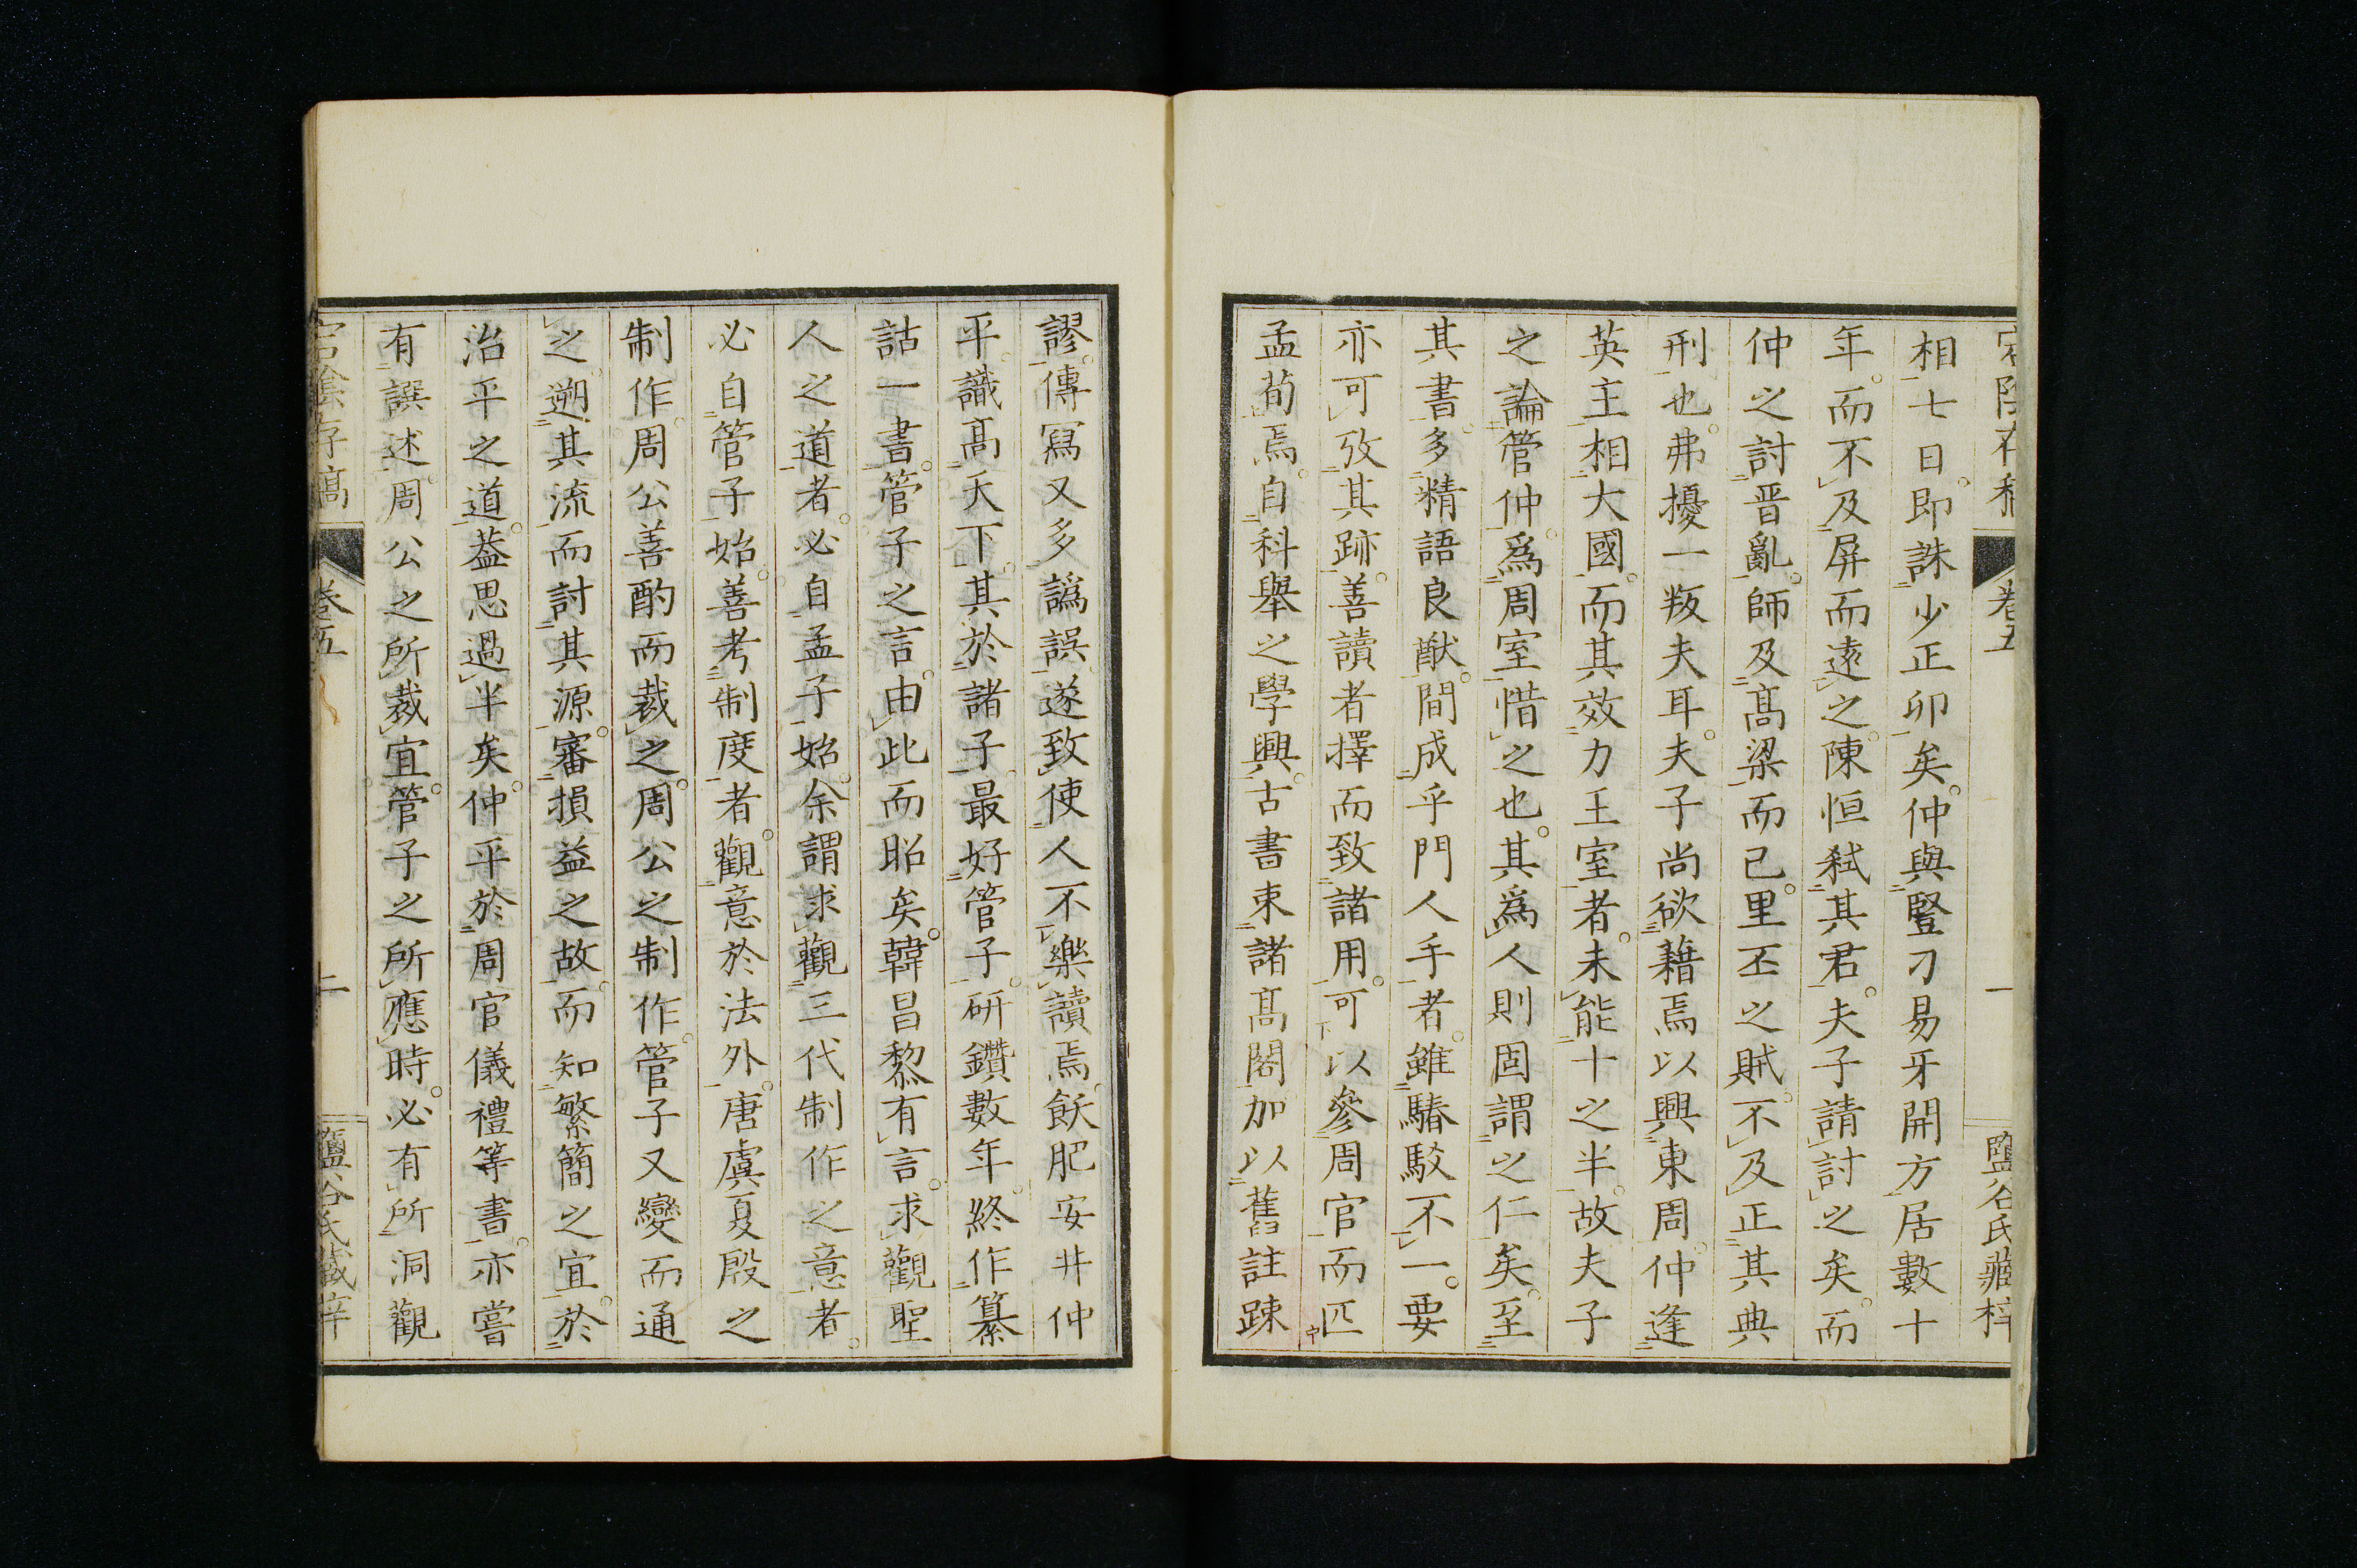 宕陰存稿 卷五 一 鹽谷氏藏梓
相七日。即誅少正卯矣。仲與豎刁易牙開方居數十
年。而不及屏而遠之。陳恒弒其君。夫子請討之矣。而
仲之討晋亂。師及髙梁而已。里丕之賊。不及正其典
刑也。弗擾一叛夫耳。夫子尚欲藉焉以興東周。仲逢
英主。相大國。而其效力王室者。未能十之半。故夫子
之論管仲。爲周室惜之也。其爲人則固謂之仁矣。至
其書。多精語良猷。間成乎門人手者。雖駁不一。要
亦可攷其跡。善讀者擇而致諸用。可以參周官而匹
孟荀焉。自科舉之學興。古書束諸髙閣。加以舊註踈
謬。傳寫又多譌誤。遂致使人不樂讀焉。飫肥安井仲
平。識髙天下。其於諸子。最好管子。研鑽數年。終作纂
詁一書。管子之言。由此而昭矣。韓昌黎有言。求觀聖
人之道者。必自孟子始。余謂求觀三代制作之意者。
必自管子始。善考制度者。觀意於法外。唐虞夏殷之
制作。周公善酌而裁之。周公之制作。管子又變而通
之。遡其流而討其源。審損益之故。而知繁簡之宜。於
治平之道。葢思過半矣。仲平於周官儀禮等書。亦嘗
有譔述。周公之所裁宜。管子之所應時。必有所洞觀
宕陰存稿 卷五 二 鹽谷氏藏梓